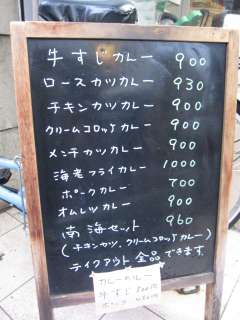 牛すじカレー 900
ロースカツカレー 930
チキンカツカレー 900
クリームコロッケカレー 900
メンチカツカレー 900
海老フライカレー 1000
ポークカレー 700
オムレツカレー 900
南海セット 960
(チキンカツ、クリームコロッケカレー)
テイクアウト全品できます。
カレールー
牛すじ